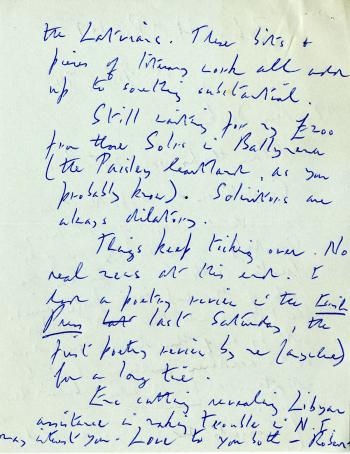 the Latvians. These bits &
pieces of literary work all add
up to something substantial.
Still waiting for my £200
from those Solrs in Ballymena
(the Paisley heartland, as you
probably know). Solicitors are
always dilatory.
Things keep ticking over. No
real news at this end. I
had a poetry review in the Irish
Press last Saturday, the
first poetry review by me (anywhere)
for a long time.
Enc cutting revealing Libyan
assistance in making trouble in N.I.
may interest you. Love to you both - Robert